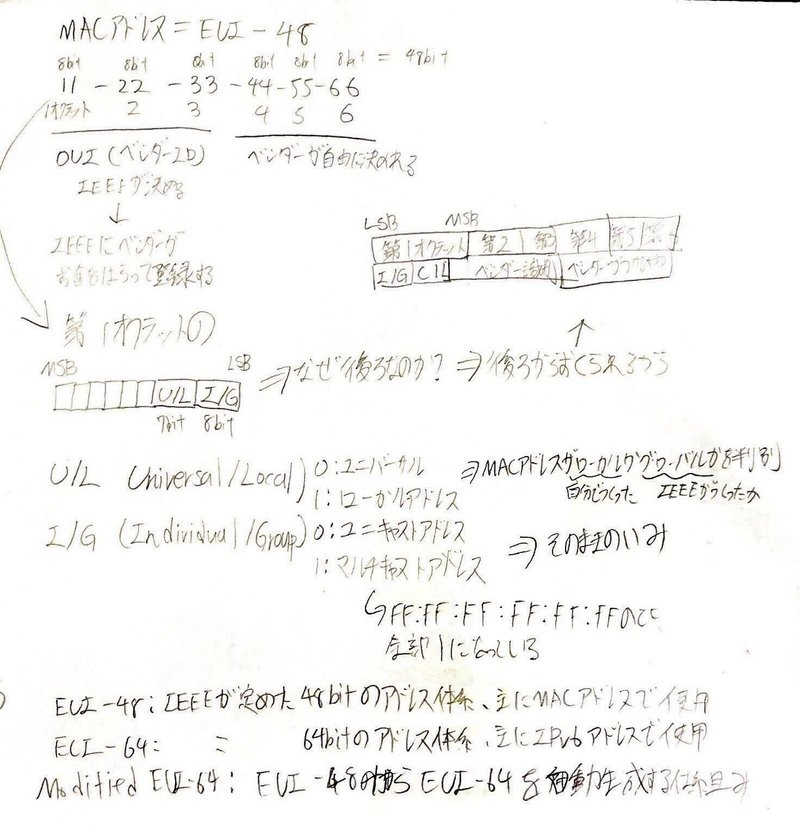 MACアドレス = EUI-48
8bit 8bit 8bit 8bit 8bit 8bit = 48bit
11 -22 -33 -44 -55 -66
1オクテット 2 3 4 5 6
OUI (ベンダーID) ベンダーが自由に決めれる
IEEEが決める
↓
IEEEにベンダーが
お金をはらって登録する
LSB MSB
第1オクテット 第2 第3 第4 第5 第6
I/G ベンダー識別 ベンダー
第1オクテットの
MSB LSB
U/L I/G ⇒なぜ後ろなのか? ⇒後ろからおくられるから
7bit 8bit
U/L (Universal/Local) 0:ユニバーサル ⇒MACアドレスがローカルかグローバルかを判別
1:ローカルアドレス 自分でつくった IEEEがつくったか
I/G (Individual/Group) 0:ユニキャストアドレス ⇒そのままのいみ
1:マルチキャストアドレス
↳FF:FF:FF:FF:FF:FFのこと
全部1になっている
EUI-48:IEEEが定めた48bitのアドレス体系、主にMACアドレスで使用
EUI-64: 〃 64bitのアドレス体系、主にIPv6アドレスで使用
Modified EUI-64: EUI-48から EUI-64を自動生成する仕組み